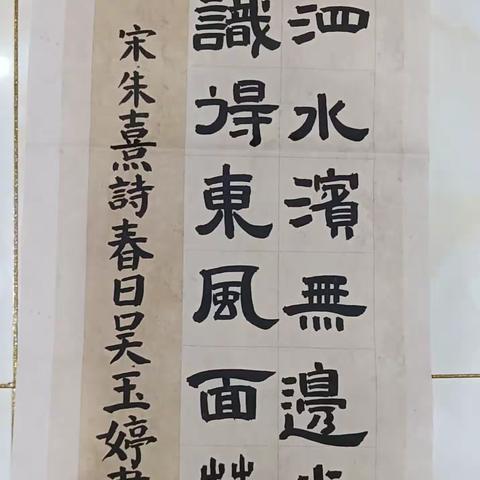 泗水濱無邊
識得東風面
宋朱熹詩春日吴玉婷